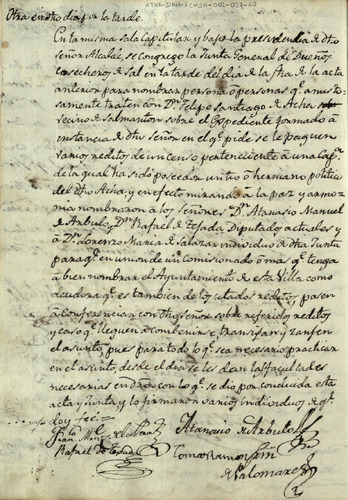 ATHA-DAH-FCHSA-001-019-60
Otra en otro dia por la tarde.
En la misma sala Capitular, y bajo la presidencia de dho
Señor Alcalde, se congregó la Junta General de Dueños
Cosecheros de Sal en la tarde del dia de la fha de la acta
anterior para nombrar persona ó personas qe amisto
samente traten con Dn Felipe Santiago de Acha
vecino de Salmanton sobre el Expediente formado á
instancia de dho Señor en el qe pide se le paguen
varios reditos de un censo perteneciente á una Capa
de la qual ha sido poseedor un tio ó hermano politico
del dho Acha, y en efecto mirando á la paz y armo-
nia nombraron á los Señores Dn Atanasio Manuel
de Arbulo y Dn Rafael de Tejada Diputados actuales y
á Dn Lorenzo Maria de Salazar individuo de dha Junta
para qe en union de un comisionado ó mas qe tenga
á bien nombrar el Ayuntamiento de esta Villa como
deudora qe es tambien de los citados reditos, pasen
á conferenciar con dho Señor sobre referidos reditos
y caso qe lleguen á combenirse, transijan y zanjen
el asunto, pues para todo lo qe sea necesario practicar
en el asunto desde el dia se les dan las facultades
necesarias en dro con lo qe se dió por concluida esta
acta y Junta y lo firmaron varios individuos de qe
doy fee
Atanasio de Arbulo
Rafael de Tejada
Tomas Ramon
de Palomares